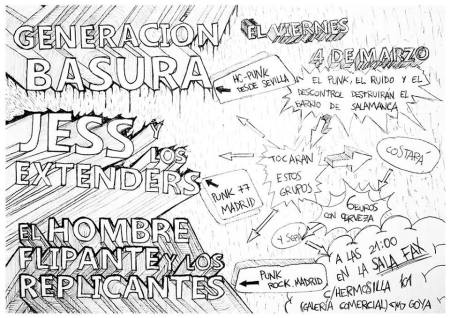 GENERACION
BASURA
HC-PUNK
DESDE SEVILLA
JESS Y
LOS
EXTENDERS
PUNK 77
MADRID
EL HOMBRE
FLIPANTE Y LOS
REPLICANTES
PUNK
ROCK. MADRID
EL VIERNES
4 DE MARZO
EL PUNK, EL RUIDO Y EL
DESCONTROL DESTRUIRÁN EL
BARRIO DE SALAMANCA
TOCARAN
ESTOS
GRUPOS
COSTARÁ
EUROS
CON CERVEZA
Y SERÁ
A LAS 21:00
EN LA SALA FAX
C/HERMOSILLA 101
(GALERÍA COMERCIAL) <M> GOYA